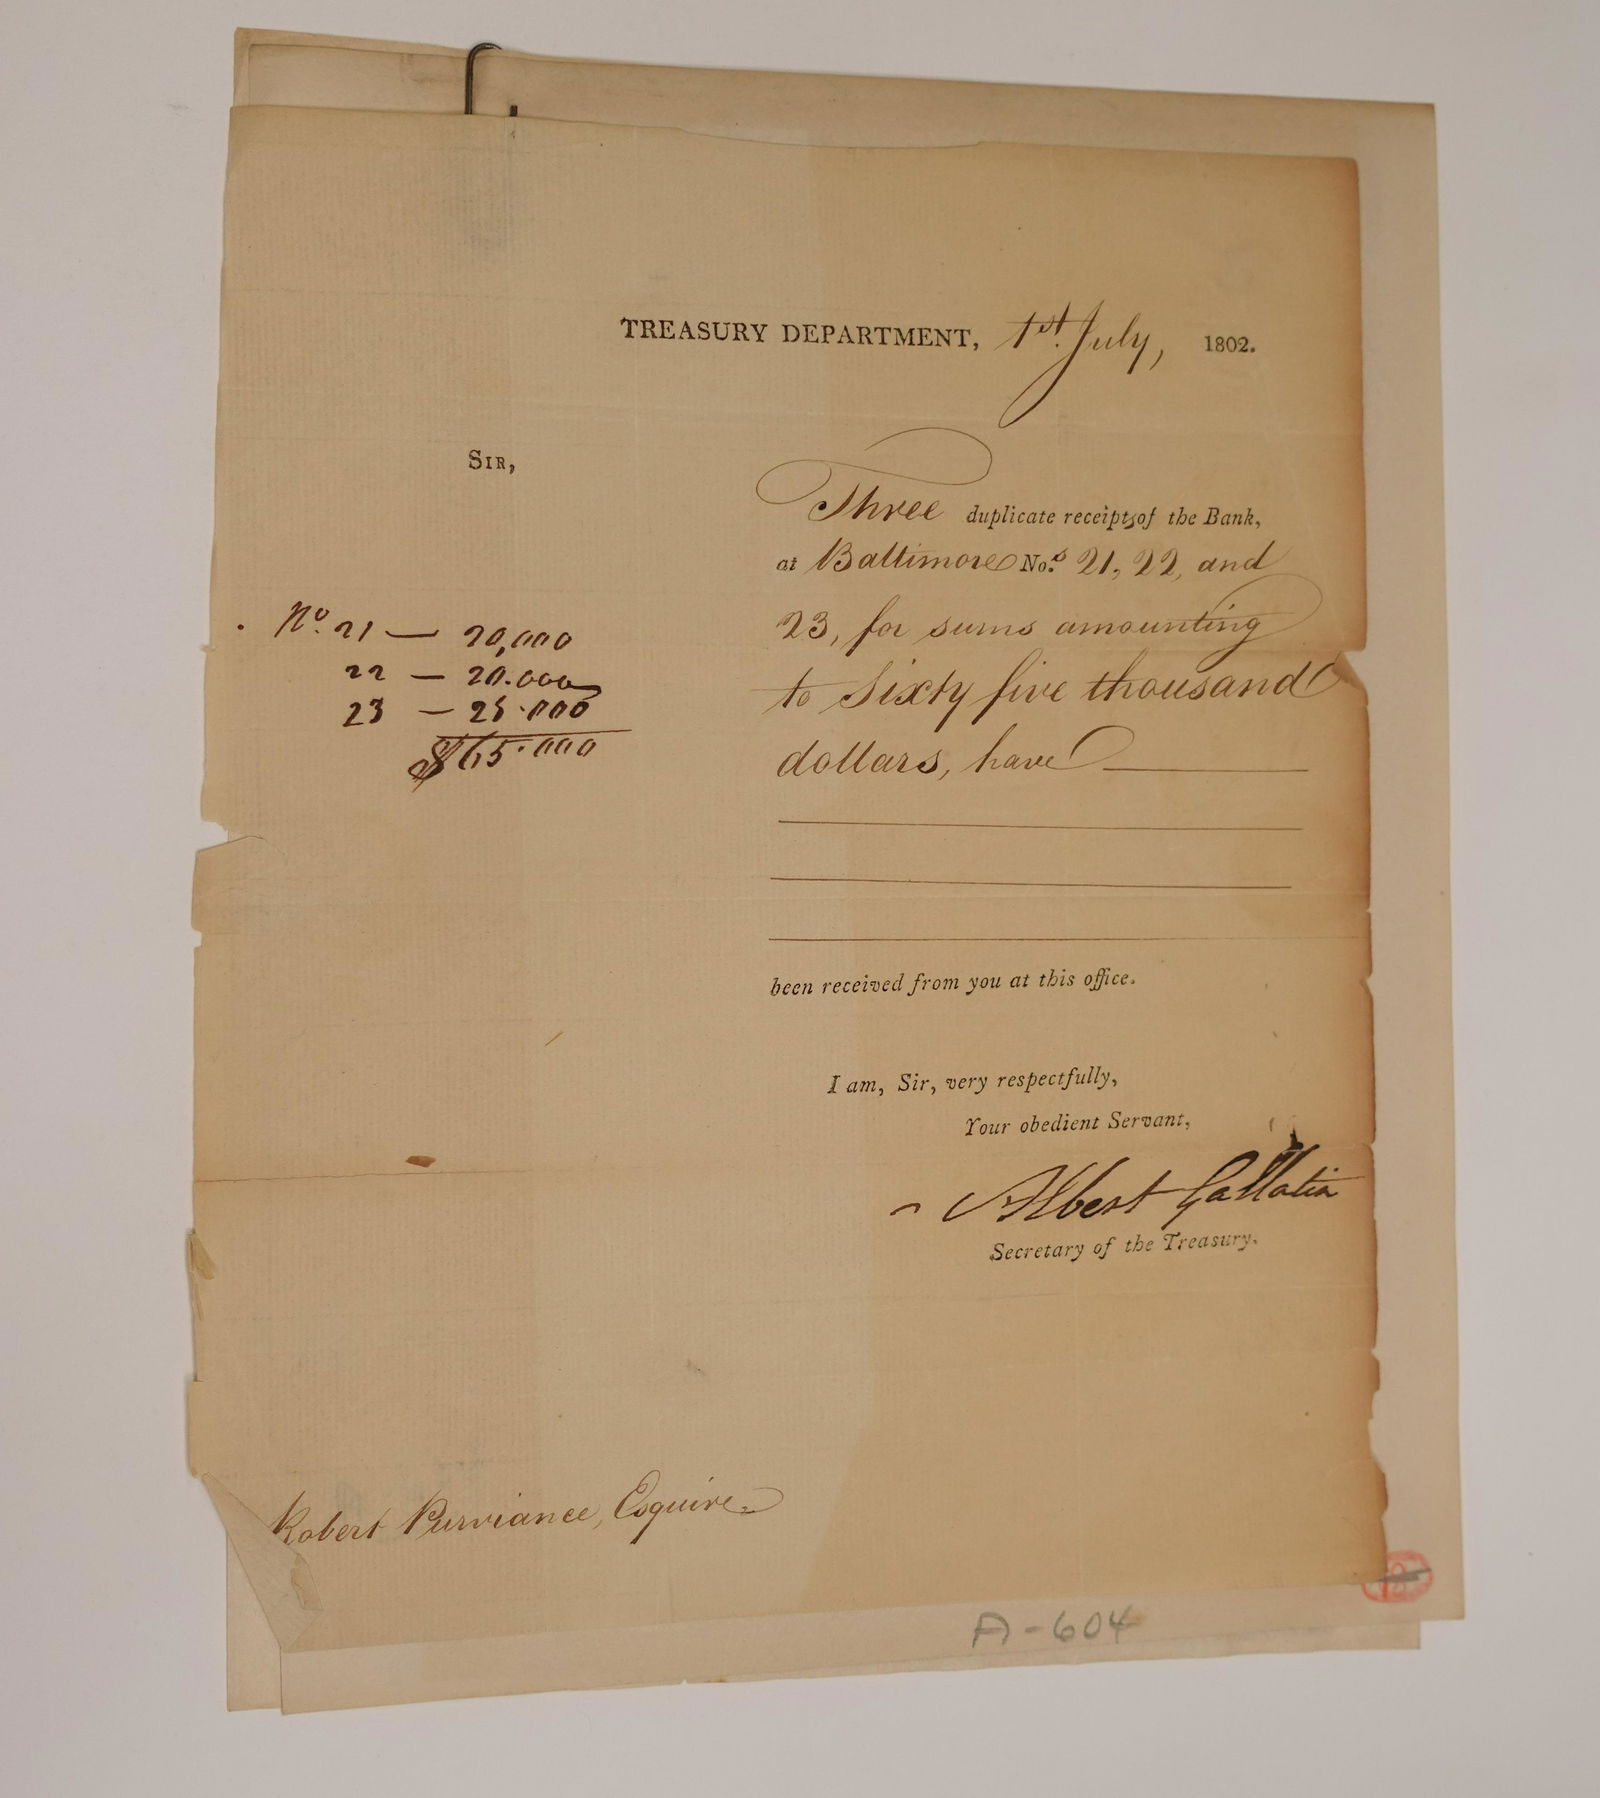 TREASURY DEPARTMENT, 1st. July, 1802.
SIR,
Three duplicate receipts of the Bank,
at Baltimore Nos. 21, 22, and
23, for sums amounting
to Sixty five thousand
dollars, have
No. 21 — 20,000
22 — 20.000
23 — 25.000
$65.000
been received from you at this office.
I am, Sir, very respectfully,
Your obedient Servant,
Albert Gallatin
Secretary of the Treasury.
Robert Purviance, Esquire.
A-604